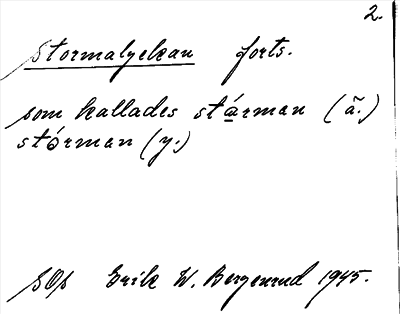 2.
Stormalyckan forts.
som kallades stárman (ã.)
stórman (y.)
SOs Erik W. Bergenrud 1945.